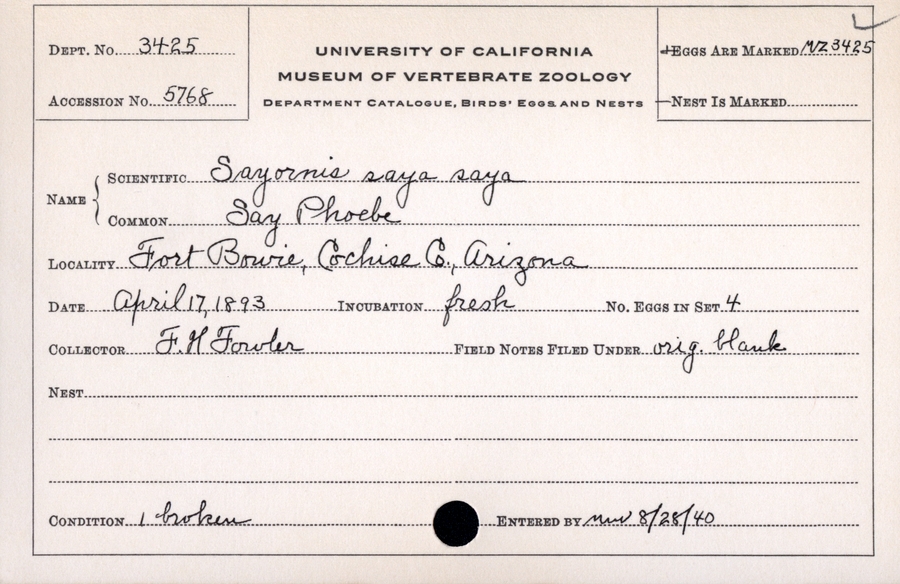 DEPT. NO. 3425
ACCESSION NO. 5768
UNIVERSITY OF CALIFORNIA
MUSEUM OF VERTEBRATE ZOOLOGY
DEPARTMENT CATALOGUE, BIRDS' EGGS AND NESTS
EGGS ARE MARKED MVZ3425
NEST IS MARKED
NAME
SCIENTIFIC Sayornis saya saya
COMMON Say Phoebe
LOCALITY Fort Bowie, Cochise Co., Arizona
DATE April 17, 1893 INCUBATION fresh NO. EGGS IN SET 4
COLLECTOR F.H Fowler FIELD NOTES FILED UNDER orig. blank
NEST
CONDITION 1 broken ENTERED BY 8/28/40